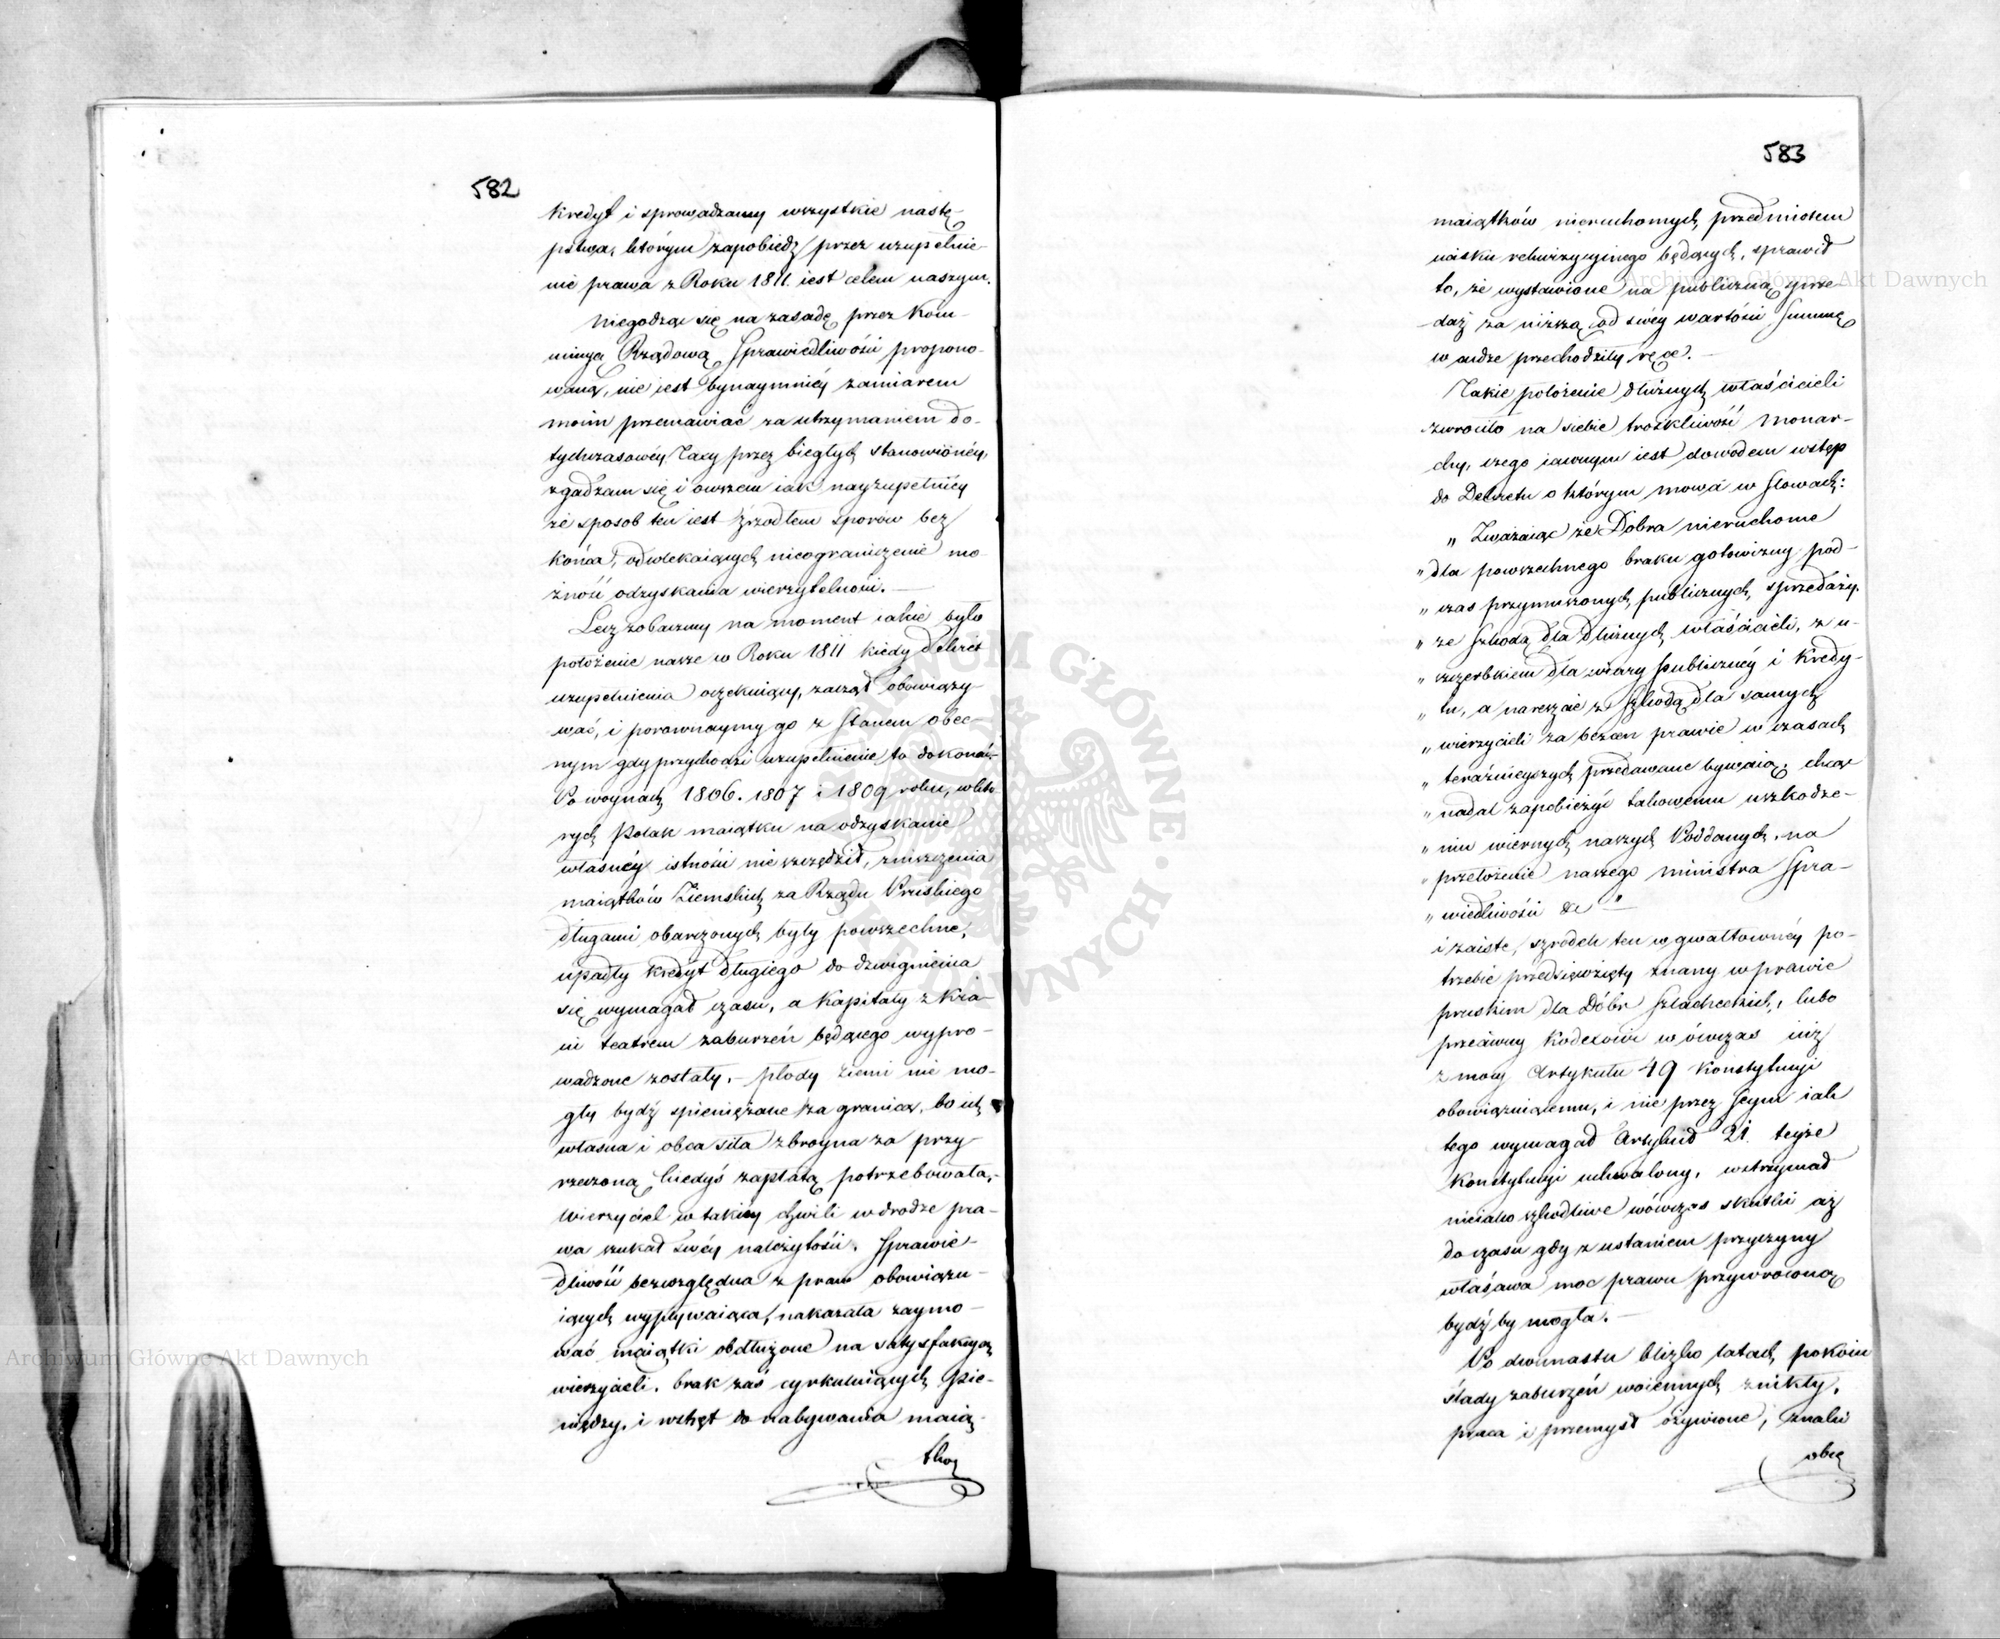 582
kredyt i sprowadzamy wszystkie nastę-
pstwa, którym zapobiedz przez uzupełnie-
nie prawa z Roku 1811. iest celem naszym.
Niegodząc się na zasadę przez Kom-
missyą Rządową Sprawiedliwości propono-
waną, nie iest bynaymniéy zamiarem
moim przemawiać za utrzymaniem do-
tychczasowéy Taxy przez biegłych stanowionéy,
zgadzam się i owszem iak nayzupełniéy
że sposob ten iest źrzodłem sporów bez
końca, odwlekaiących nieograniczenie mo-
żność odzyskania wierzytelności. —
Lecz zobaczmy na moment iakie było
położenie nasze w Roku 1811 kiedy Dekret
uzupełnienia oczekuiący, zaczął obowiązy-
wać, i porównaymy go z stanem obec-
nym gdy przychodzi uzupełnienie to dokonać.
Po woynach 1806. 1807 i 1809 roku, w któ-
rych Polak maiątku na odzyskanie
własnéy istności nieszczędził, zniszczenia
maiątków Ziemskich za Rządu Pruskiego
długami obarczonych były powszechne,
upadły kredyt długiego do dzwignienia
się wymagał czasu, a kapitały z kra-
iu teatrem zaburzeń będącego wypro-
wadzone zostały. — płody ziemi nie mo-
gły bydź spieniężane za granicą, bo ich
własna i obca siła zbroyna za przy-
rzeczoną kiedyś zapłatą potrzebowała, -
Wierzyciel w takiéy chwili w drodze pra-
wa szukał swéy należytości. Sprawie-
dliwość bezwzględna z praw obowiązu-
iących wypływaiąca, nakazała zaymo-
wać maiątki obdłużone na satysfakcyą
wierzycieli. brak zaś cyrkuluiących Pie-
niędzy, i wchęt do nabywania maią-
tków
583
maiątków nieruchomych przedmiotem
nasku rekwizycyinego będących, sprawił
to, że wystawione na publiczną sprze-
daż za niższą od swéy wartości Summę
w cudze przechodziły ręce. —
Takie położenie dłużnych właścicieli
zwróciło na siebie troskliwość Monar-
chy, czego iawnym iest dowodem wstęp
do Dekretu o którym mowa w słowach:
„ Zważaiąc że Dobra nieruchome
„ dla powszechnego braku gotowizny pod-
„ czas przymuszonych publicznych sprzedaży,
„ ze szkodą dla dłużnych właścicieli, z u-
„ szczerbkiem dla wiary publicznéy i kredy-
„ tu, a nareszcie z szkodą dla samych
„ wierzycieli za bezcen prawie w czasach
„ teraźnieyszych przedawane bywaią. chcąc
„ nadal zapobieżyć takowemu uszkodze-
„ niu wiernych naszych Poddanych, na
„ przełożenie naszego Ministra Spra-
„ wiedliwości &c " —
i zaiste, szrodek ten w gwałtownéy po-
trzebie przedsięwzięty znany w prawie
pruskim dla Dóbr Szlacheckich, lubo
przeciwny Kodexowi wówczas iuż
z mocy Artykułu 49 Konstytucyi
obowiązuiącemu, i nie przez Seym iak
tego wymagał Artykuł 21. teyże
Konstytucyi uchwalony, wstrzymał
nieiako szkodliwe wówczas skutki aż
do czasu gdy z ustaniem przyczyny
właściwa moc prawu przywróconą
bydź by mogła. —
Po dwunastu blizko latach pokoiu
ślady zaburzeń woiennych znikły,
praca i przemysł ożywione, znalii
obcą